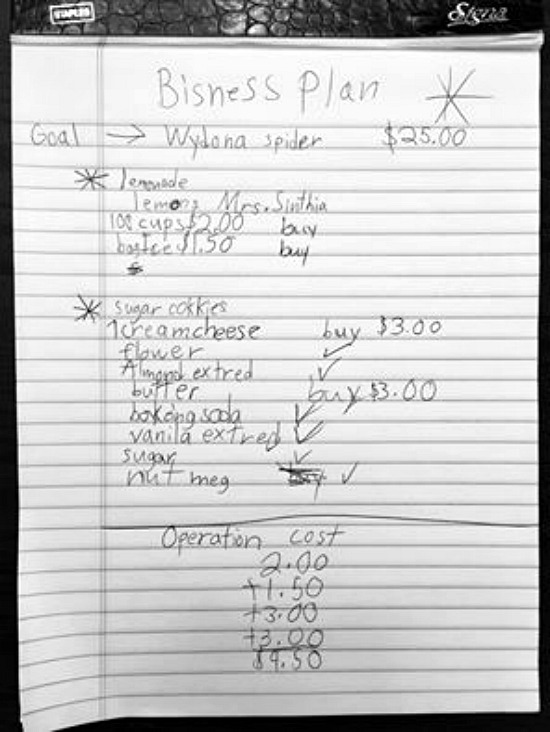 STAPLES
Signa
Bisness Plan
Goal → Wydona spider $25.00
* lemonade
lemons Mrs. Sinthia
100 cups $2.00 buy
bag Ice $1.50 buy
* sugar cokkies
1 creamcheese buy $3.00
flower ✓
Almond extred ✓
butter buy $3.00
baking soda ✓
vanila extred ✓
sugar ✓
nut meg ✓
Operation cost
2.00
+1.50
+3.00
+3.00
$9.50